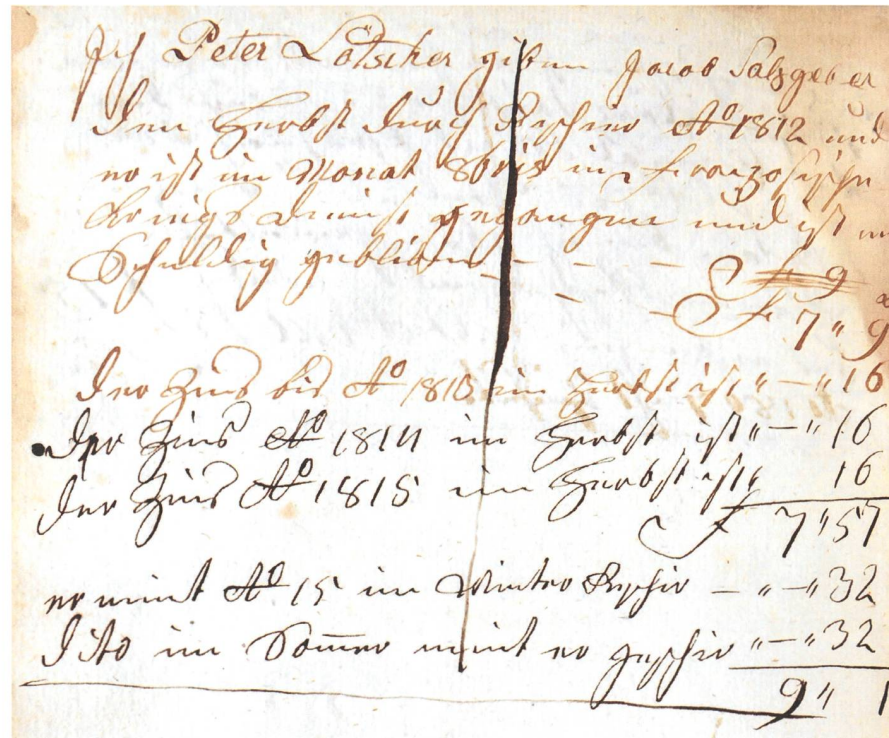 Ich Peter Lötscher giben Jacob Salzgeber
den Herbst durch Gschier Aº 1812 und
er ist im Monat 8bris in französische
Kriegs dienst gegangen und ist
Schuldig gebliben — — — f 9
— f 7 " 9
der Zins bis Aº 1813 im Herbst ist " — " 16
der Zins Aº 1814 im Herbst ist " — " 16
der Zins Aº 1815 im Herbst ist " 16
f 7 " 57
er nimt Aº 15 im Winter Gschir — " — " 32
dito im Som̄er nimt er gschir " — " 32
9 " 1